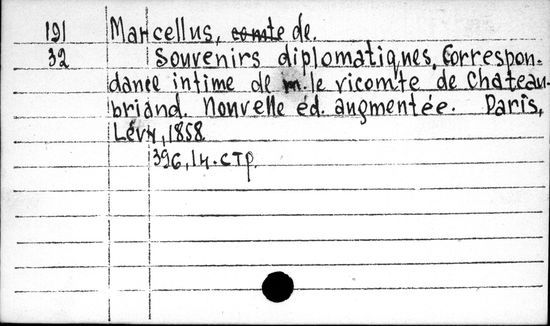 191 Marcellus, comte de.
32 Souvenirs diplomatiques. Correspon-
dance intime de m. le vicomte de Chateau-
briand. Nouvelle éd. augmentée. Paris,
Lévy, 1858
396, 14. стр.